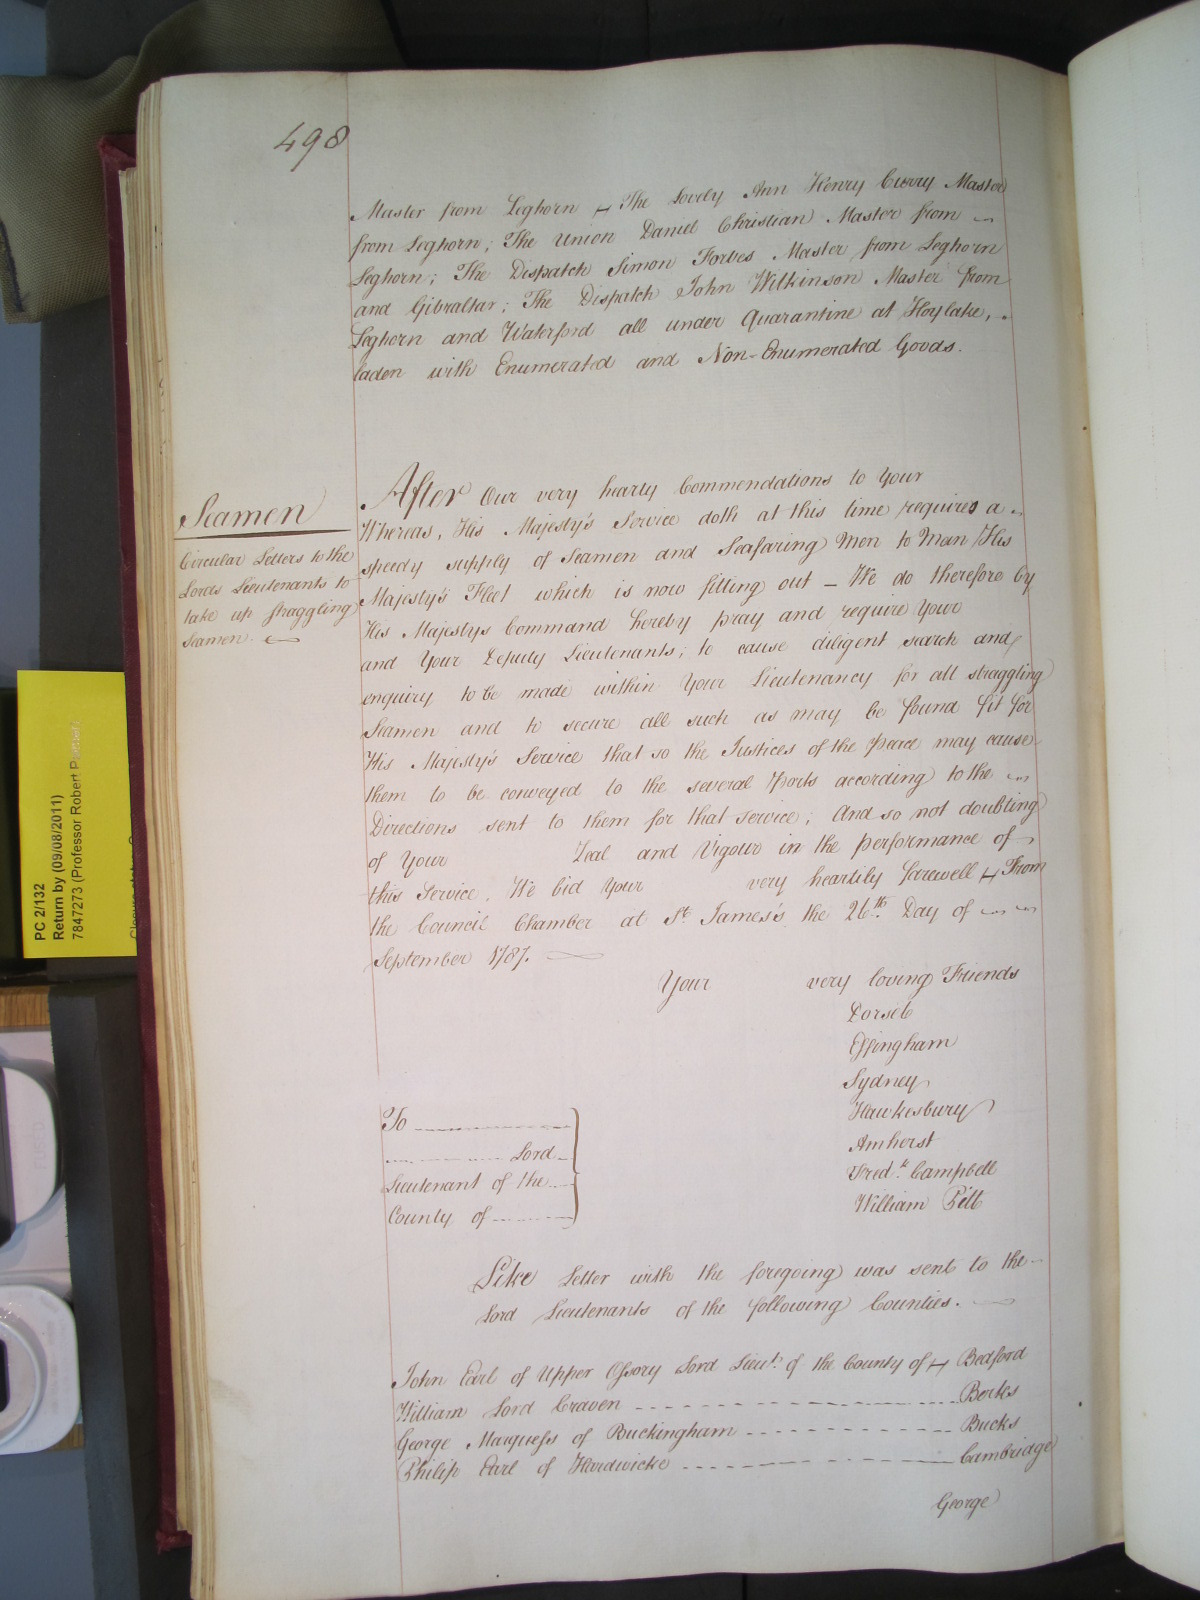 498
Master from Leghorn The Lovely Ann Henry Curry Master
from Leghorn; The Union Daniel Christian Master from
Leghorn; The Dispatch Simon Forbes Master from Leghorn
and Gibraltar; The Dispatch John Wilkinson Master from
Leghorn and Waterford all under Quarantine at Hoylake,
laden with Enumerated and Non-Enumerated Goods.
Seamen
Circular Letters to the
Lords Lieutenants to
take up straggling
Seamen.
After Our very hearty Commendations to Your
Whereas, His Majesty's Service doth at this time requires a
speedy supply of Seamen and Seafaring Men to Man His
Majesty's Fleet which is now fitting out — We do therefore by
His Majestys Command hereby pray and require Your
and Your Deputy Lieutenants; to cause diligent search and
enquiry to be made within Your Lieutenancy for all straggling
Seamen and to secure all such as may be found fit for
His Majesty's Service that so the Justices of the Peace may cause
them to be conveyed to the several Ports according to the
Directions sent to them for that service; And so not doubting
of Your Zeal and Vigour in the performance of
this Service. We bid Your very heartily farewell From
the Council Chamber at St. James's the 26th. Day of
September 1787.
Your very loving Friends
Dorset
Effingham
Sydney
Hawkesbury
Amherst
Fred.k Campbell
William Pitt
To
Lord
Lieutenant of the
County of
Like Letter with the foregoing was sent to the
Lord Lieutenants of the following Counties.
John Earl of Upper Ossory Lord Lieut. of the County of Bedford
William Lord Craven Berks
George Marquess of Buckingham Bucks
Philip Earl of Hardwicke Cambridge
George
PC 2/132
Return by (09/08/2011)
7847273 (Professor Robert